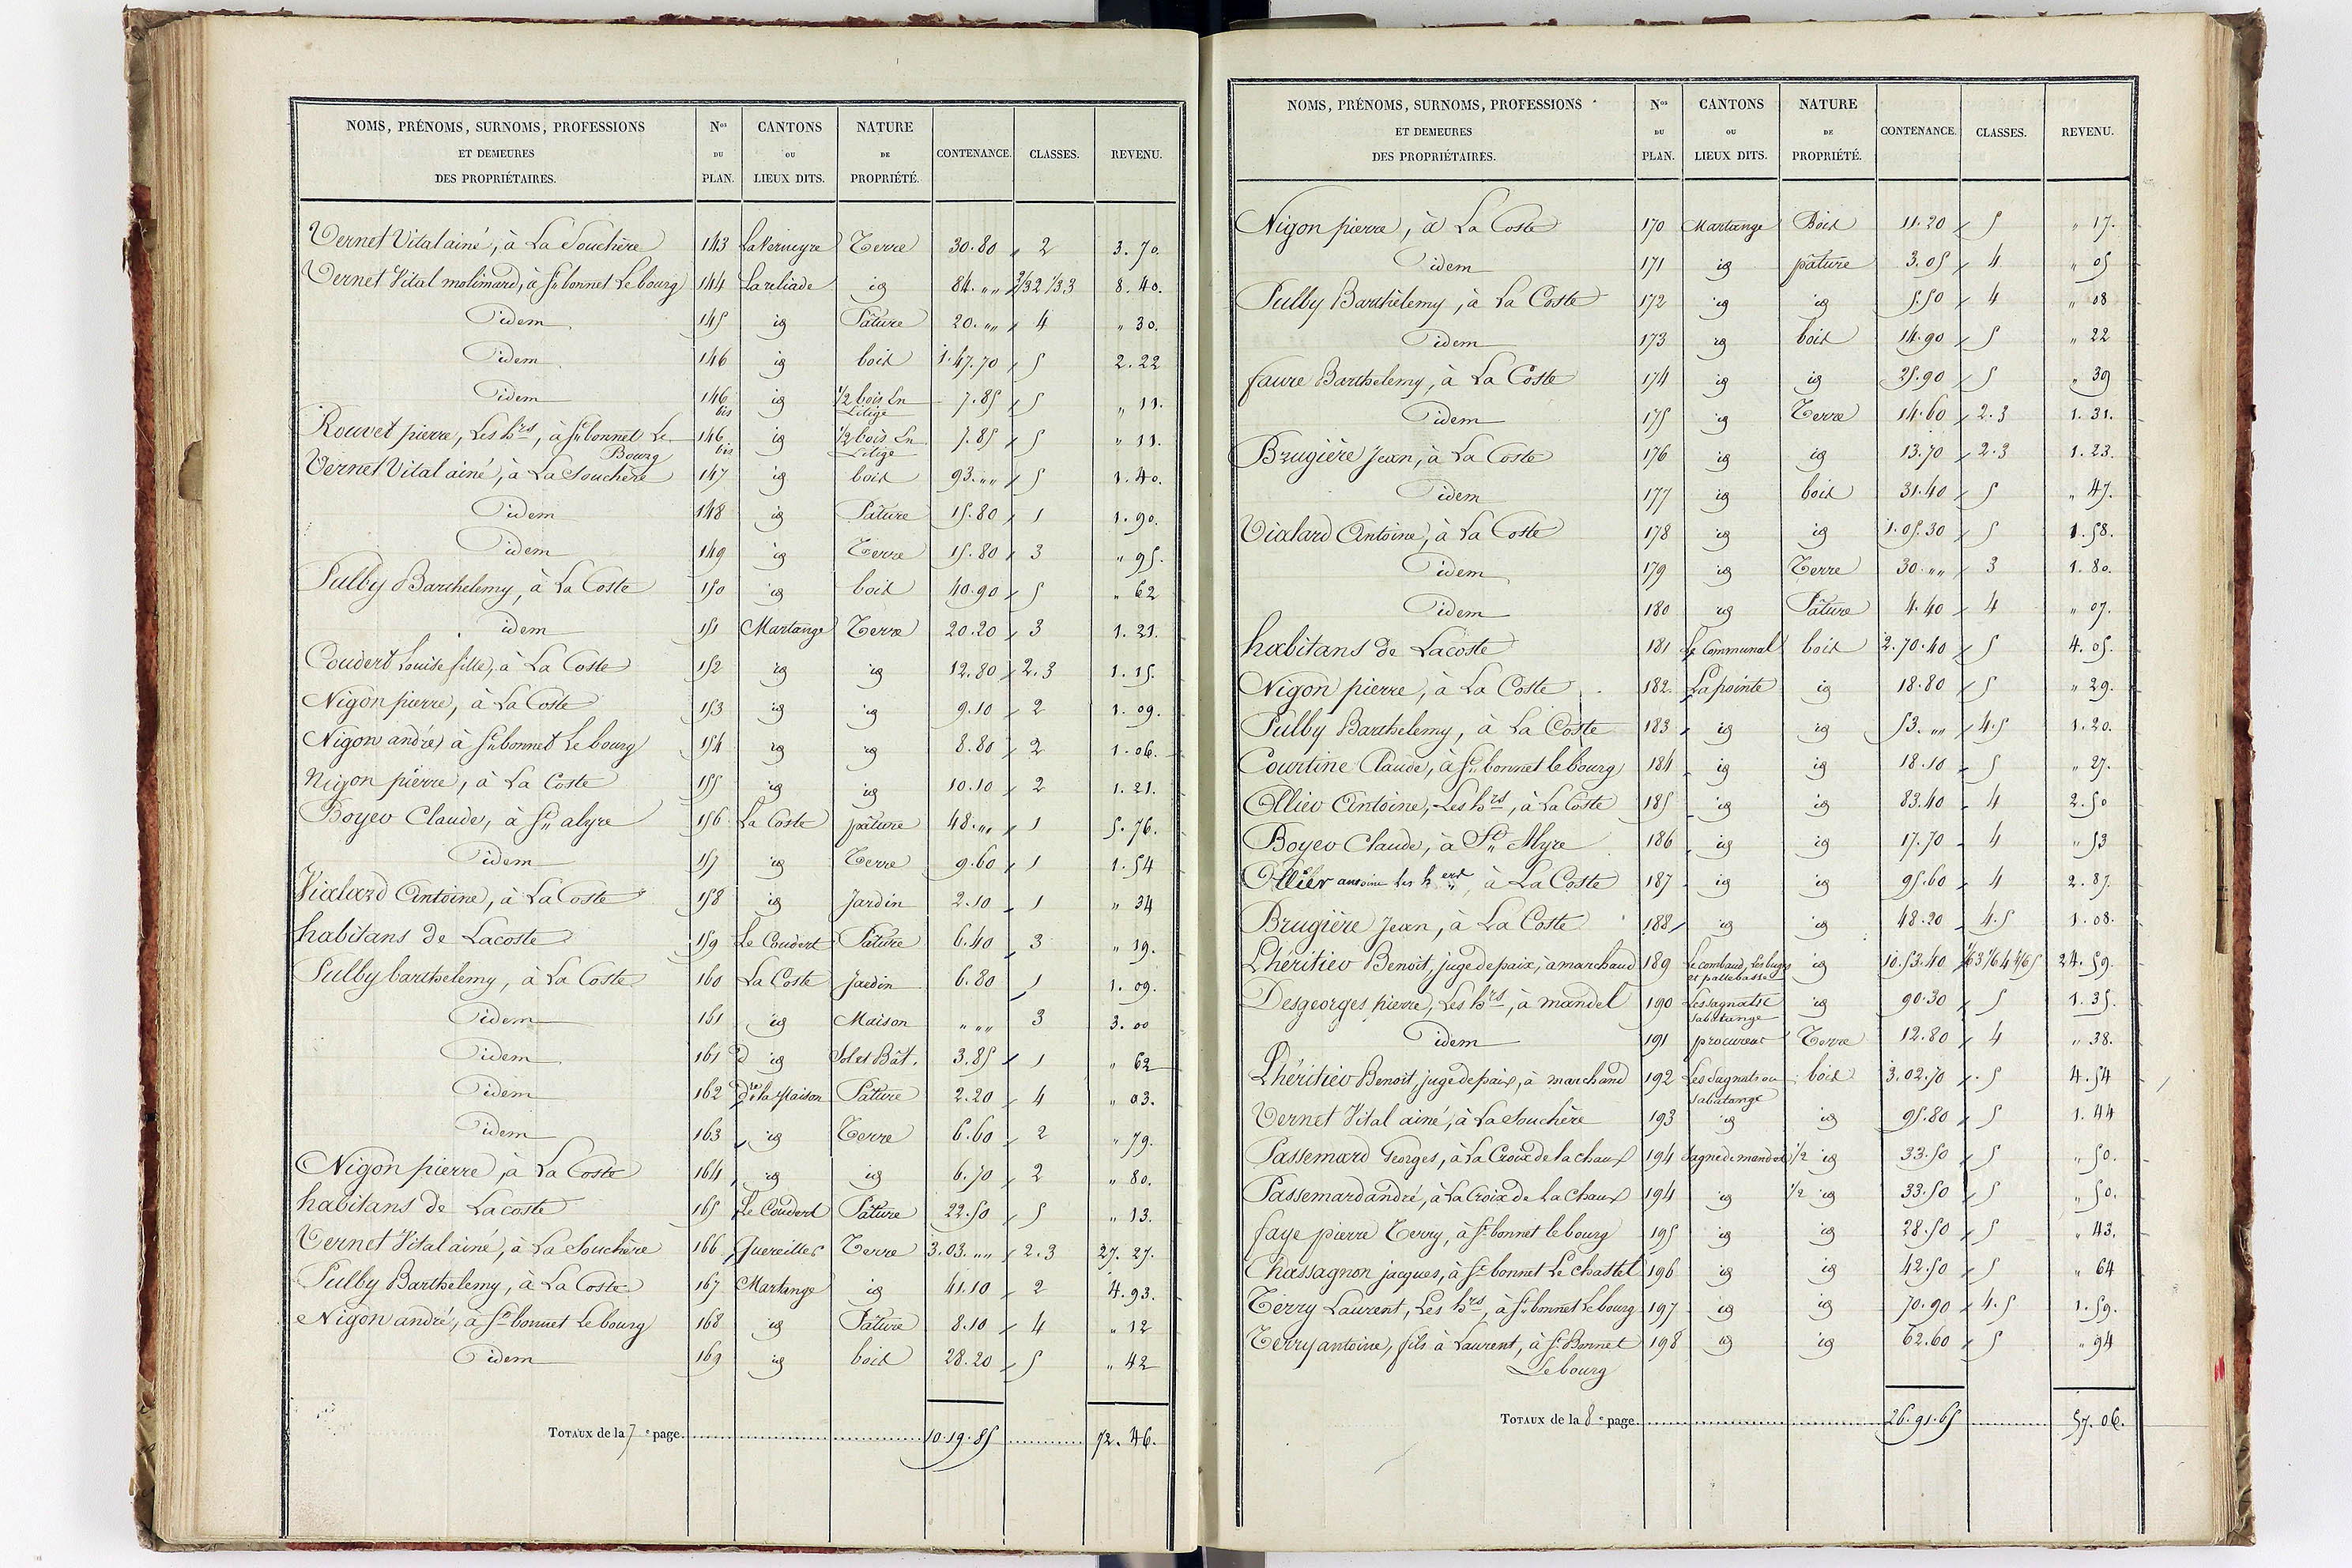 NOMS, PRÉNOMS, SURNOMS, PROFESSIONS ET DEMEURES DES PROPRIÉTAIRES. Nos DU PLAN. CANTONS OU LIEUX DITS. NATURE DE PROPRIÉTÉ. CONTENANCE. CLASSES. REVENU.
Vernet Vital ainé, à La Souchère 143 La Verneyre Terre 30.80 2 3.70.
Vernet Vital molimard, à St bonnet Le bourg 144 Lareliade id 84. „„ 2/3 2 1/3 3 8.40.
idem 145 id Pâture 20. „„ 4 „ 30.
idem 146 id bois 1.47.70 5 2.22
idem 146 bis id 1/2 bois En Litige 7.85 5 „ 11.
Rouvet pierre, Les hrs, à St bonnet Le Bourg 146 bis id 1/2 bois En Litige 7.85 5 „ 11.
Vernet Vital ainé, à La Souchère 147 id bois 93. „„ 5 1.40.
idem 148 id Pâture 15.80 1 1.90.
idem 149 id Terre 15.80 3 „ 95.
Pulby Barthelemy, à La Coste 150 id bois 40.90 5 „ 62
idem 151 Martange Terre 20.20 3 1.21.
Coudert Louise fille, à La Coste 152 id id 12.80 2.3 1.15.
Nigon pierre, à La Coste 153 id id 9.10 2 1.09.
Nigon andré, à St bonnet Le bourg 154 id id 8.80 2 1.06.
Nigon pierre, à La Coste 155 id id 10.10 2 1.21.
Boyer Claude, à St alyre 156 La Coste pâture 48. „„ 1 5.76.
idem 157 id Terre 9.60 1 1.54
Vialard Antoine, à La Coste 158 id Jardin 2.10 1 „ 34
habitans de Lacoste 159 Le Coudert Pâture 6.40 3 „ 19.
Pulby barthelemy, à La Coste 160 La Coste Jardin 6.80 1 1.09.
idem 161 id Maison „ „„ 3 3.00
idem 161 id Sol et Bât. 3.85 1 „ 62
idem 162 Dre la Maison Pâture 2.20 4 „ 03.
idem 163 id Terre 6.60 2 „ 79.
Nigon pierre, à La Coste 164 id id 6.70 2 „ 80.
habitans de Lacoste 165 Le Coudert Pâture 22.50 5 „ 13.
Vernet Vital ainé, à La Souchère 166 Juereilles Terre 3.03. „„ 2.3 27.27.
Pulby Barthelemy, à La Coste 167 Martange id 41.10 2 4.93.
Nigon andré, à St bonnet Le bourg 168 id Pâture 8.10 4 „ 12
idem 169 id bois 28.20 5 „ 42
TOTAUX de la 7e page. 10.19.85 72.46.
NOMS, PRÉNOMS, SURNOMS, PROFESSIONS ET DEMEURES DES PROPRIÉTAIRES. Nos DU PLAN. CANTONS OU LIEUX DITS. NATURE DE PROPRIÉTÉ. CONTENANCE. CLASSES. REVENU.
Nigon pierre, à La Coste 170 Martange Bois 11.20 5 „ 17.
idem 171 id pâture 3.05 4 „ 05
Pulby Barthèlemy, à La Coste 172 id id 5.50 4 „ 08
idem 173 id bois 14.90 5 „ 22
faure Barthelemy, à La Coste 174 id id 25.90 5 „ 39
idem 175 id Terre 14.60 2.3 1.31.
Brugière Jean, à La Coste 176 id id 13.70 2.3 1.23.
idem 177 id bois 31.40 5 „ 47.
Vialard Antoine, à La Coste 178 id id 1.05.30 5 1.58.
idem 179 id Terre 30. „„ 3 1.80.
idem 180 id Pâture 4.40 4 „ 07.
habitans de Lacoste 181 Le Communal bois 2.70.40 5 4.05.
Nigon pierre, à La Coste 182. La pointe id 18.80 5 „ 29.
Pulby Barthelemy, à La Coste 183 id id 53. „„ 4.5 1.20.
Courtine Claude, à St bonnet le bourg 184 id id 18.10 5 „ 27.
Ollier Antoine, Les hrs, à La Coste 185 id id 83.40 4 2.50
Boyer Claude, à St Alyre 186 id id 17.70 4 „ 53
Ollier antoine les hers, à La Coste 187 id id 95.60 4 2.87.
Brugière Jean, à La Coste 188 id id 48.20 4.5 1.08.
Lhéritier Benoit, juge de paix, à marchaud 189 Le combaud, Les buges et pallebasse id 10.53.40 1/6 3 1/6 4 4/6 5 24.59.
Desgeorges pierre, Les hrs, à mandel 190 Les sagnatse Sabatange id 90.30 5 1.35.
idem 191 procureur Terre 12.80 4 „ 38.
Lhéritier Benoit, juge de paix, à marchand 192 Les Sagnats ou Sabatange bois 3.02.70 5 4.54
Vernet Vital ainé, à La Souchère 193 id id 95.80 5 1.44
Passemard Georges, à La Croix de la chaux 194 Sagne de mandel 1/2 id 33.50 5 „ 50.
Passemard andré, à La Croix de La Chaux 194 id 1/2 id 33.50 5 „ 50.
faye pierre Terry, à St bonnet le bourg 195 id id 28.50 5 „ 43.
Chassagnon jacques, à St bonnet Le chastel 196 id id 42.50 5 „ 64
Terry Laurent, Les hrs, à St bonnet Le bourg 197 id id 70.90 4.5 1.59.
Terry antoine, fils à Laurent, à St Bonnet Le bourg 198 id id 62.60 5 „ 94
TOTAUX de la 8e page. 26.91.65 57.06.